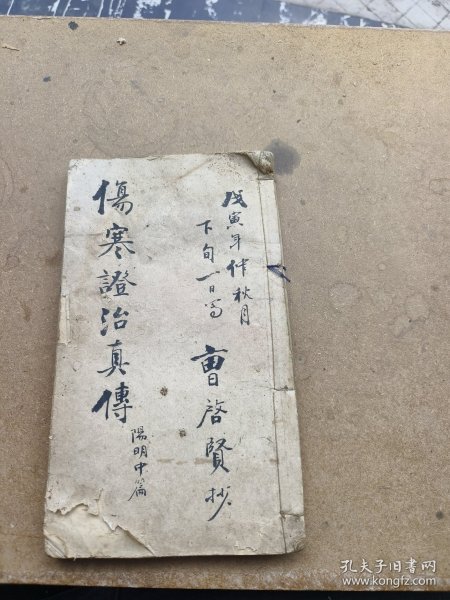 戊寅年仲秋月
下旬一日写
曹啓賢抄
傷寒證治真傳
陽明中篇
孔夫子旧书网
www.kongfz.com